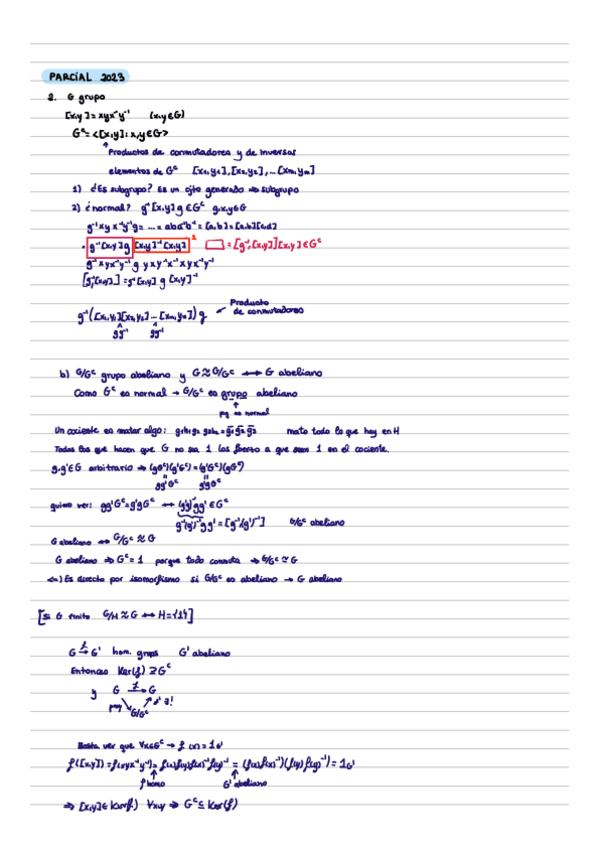 PARCIAL 2023
2. G grupo
[x,y] = xyx⁻¹y⁻¹ (x,y∈G)
Gᶜ = <[x,y]: x,y∈G>
Productos de conmutadores y de inversos
elementos de Gᶜ [x₁,y₁],[x₂,y₂],...[xₘ,yₘ]
1) ¿Es subgrupo? Es un cjto generado ⇒ subgrupo
2) ¿normal? g⁻¹[x,y]g ∈ Gᶜ g,x,y∈G
g⁻¹xyx⁻¹y⁻¹g = ... = aba⁻¹b⁻¹ = [a,b] = [a,b][c,d]
· g⁻¹[x,y]g [x,y]⁻¹[x,y] = [g⁻¹,[x,y]][x,y] ∈ Gᶜ
g⁻¹xyx⁻¹y⁻¹g yxy⁻¹x⁻¹xyx⁻¹y⁻¹
[g⁻¹,[x,y]] = g⁻¹[x,y] g [x,y]⁻¹
Producto
de conmutadores
g⁻¹([x₁,y₁][x₂,y₂]...[xₘ,yₘ])g
gg⁻¹ gg⁻¹
b) G/Gᶜ grupo abeliano y G≈G/Gᶜ ⟷ G abeliano
Como Gᶜ es normal → G/Gᶜ es grupo abeliano
pq es normal
Un cociente es matar algo: mato todo lo que hay en H
Todos los que hacen que G no sea 1 los fuerzo a que sean 1 en el cociente.
g,g'∈G arbitrario ⇒ (gGᶜ)(g'Gᶜ) = (g'Gᶜ)(gGᶜ)
gg'Gᶜ g'gGᶜ
quiero ver: gg'Gᶜ = g'gGᶜ ⟷ (g'g)⁻¹gg' ∈ Gᶜ
g⁻¹(g')⁻¹gg' = [g⁻¹,(g')⁻¹] G/Gᶜ abeliano
G abeliano ⟷ G/Gᶜ ≈ G
G abeliano ⇒ Gᶜ = 1 porque todo conmuta ⇒ G/Gᶜ ≃ G
<=) Es directo por isomorfismo si G/Gᶜ es abeliano → G abeliano
[Si G finito G/H ≈ G ⟷ H={1}]
G →f G' hom. grupos G' abeliano
Entonces Ker(f) ⊇ Gᶜ
y G →f G
proy ∃!
G/Gᶜ
Basta ver que ∀x∈Gᶜ → f(x) = 1G'
f([x,y]) = f(xyx⁻¹y⁻¹) = f(x)f(y)f(x)⁻¹f(y)⁻¹ = (f(x)f(x)⁻¹)(f(y)f(y)⁻¹) = 1G'
f homo G' abeliano
⇒ [x,y] ∈ Ker(f) ∀x,y ⇒ Gᶜ ⊆ Ker(f)